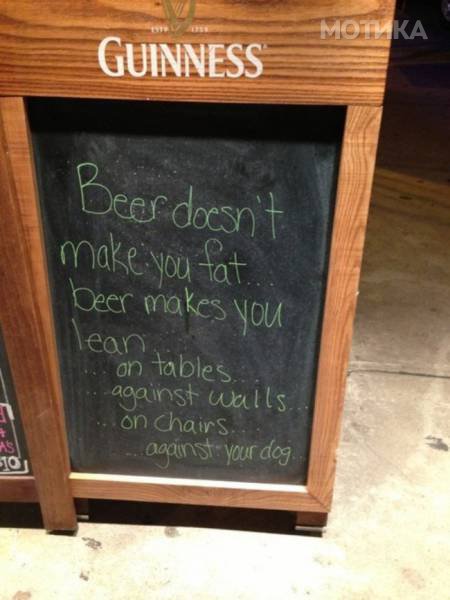 МОТИКА
ESTD 1759
GUINNESS
Beer doesn't
make you fat...
beer makes you
lean...
...on tables...
...against walls...
...on chairs...
...against your dog...